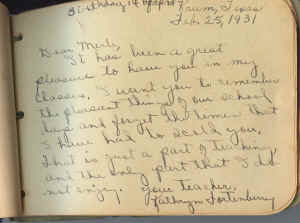 Birthday 14 April
Krum, Texas
Feb. 25, 1931
Dear Merle,
It has been a great
pleasure to have you in my
classes. I want you to remember
the pleasant things of our school
days and forget the times that
I have had to scold you,
that is just a part of teaching,
and the only part that I do
not enjoy. Your Teacher,
Kathryn Fortenberry